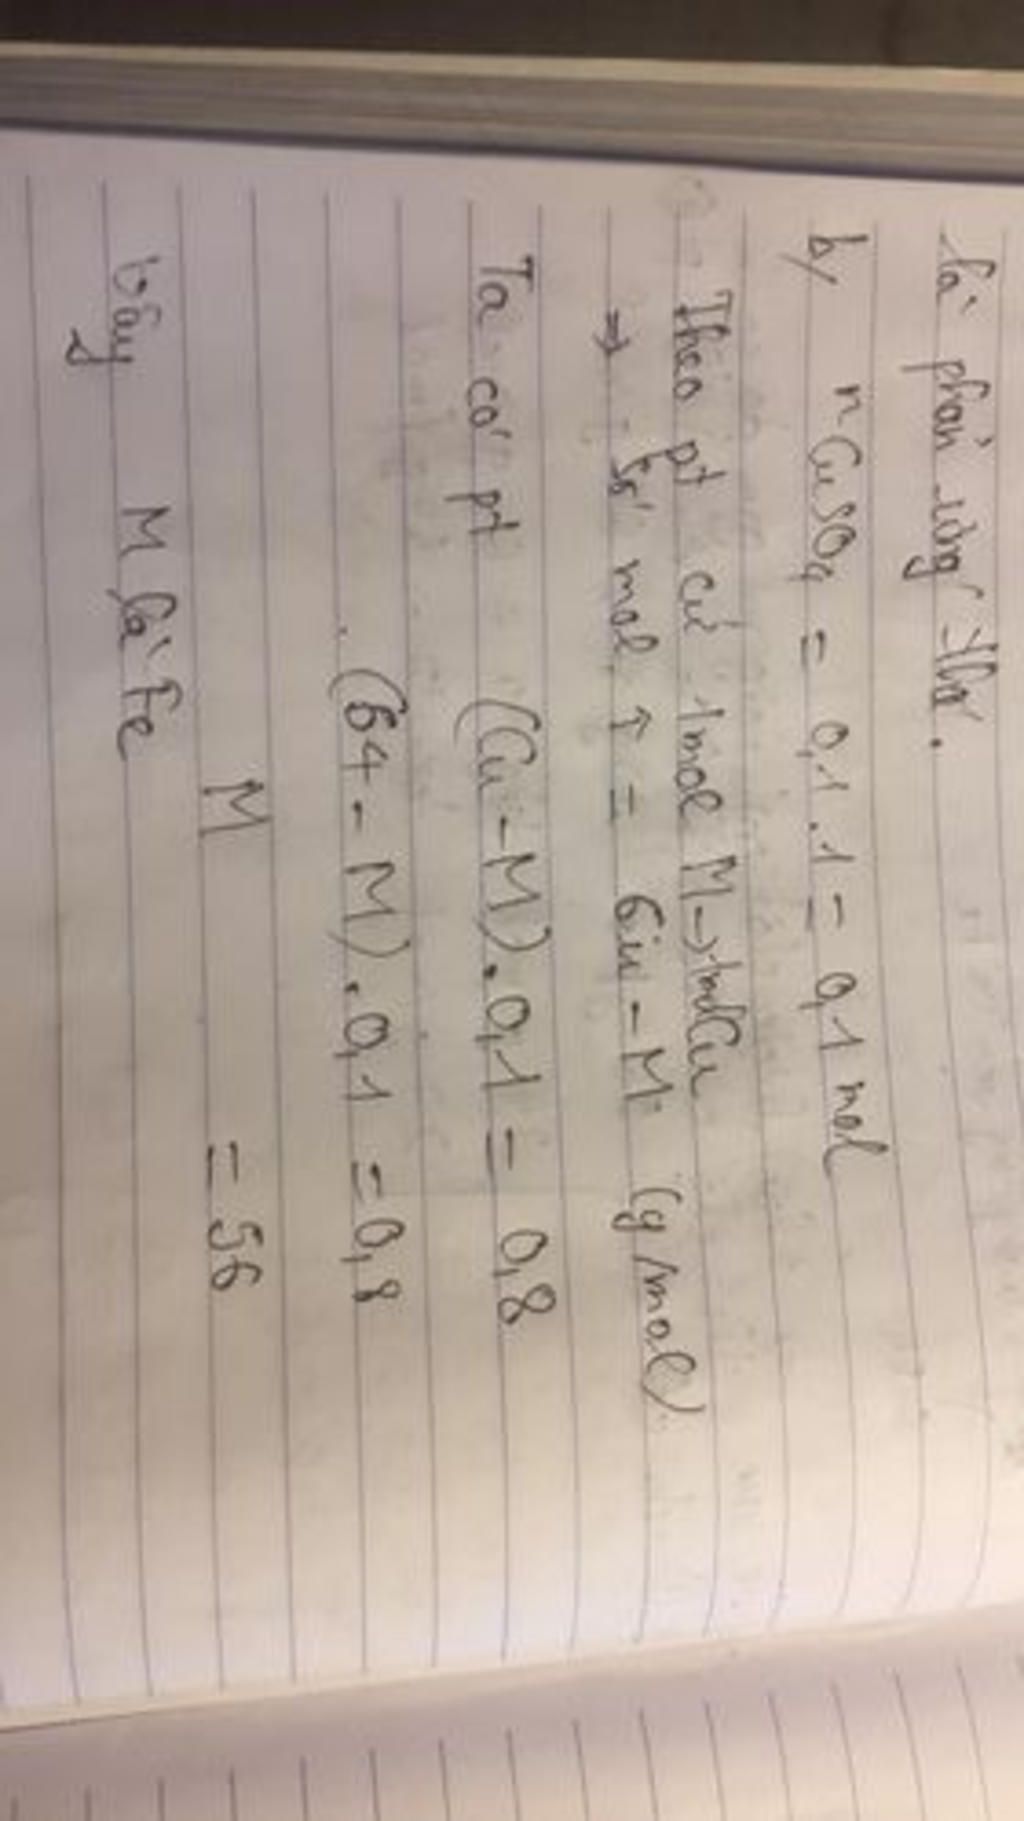 là phản ứng thế.
b, nCuSO4 = 0,1.1 = 0,1 mol
Theo pt cứ 1mol M→1molCu
⇒ Số mol ↑ = Cu - M (g/mol)
Ta có pt (Cu - M).0,1 = 0,8
(64 - M).0,1 = 0,8
M = 56
Vậy M là Fe